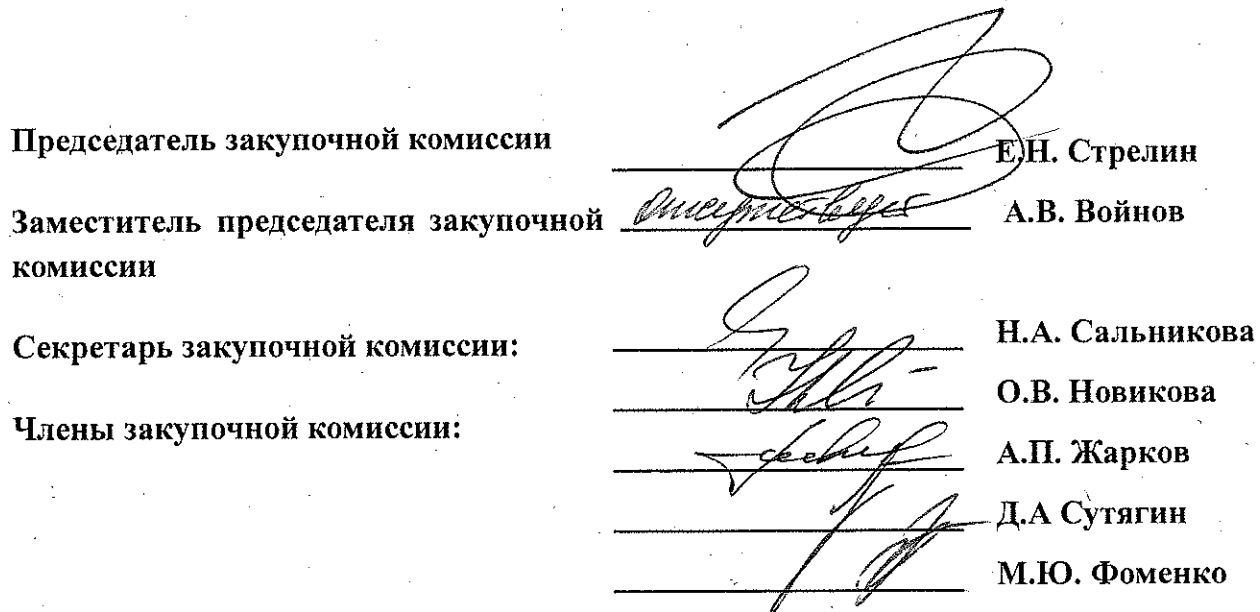 Председатель закупочной комиссии Е.Н. Стрелин
Заместитель председателя закупочной отсутствует А.В. Войнов
комиссии
Секретарь закупочной комиссии: Н.А. Сальникова
О.В. Новикова
Члены закупочной комиссии:
А.П. Жарков
Д.А Сутягин
М.Ю. Фоменко